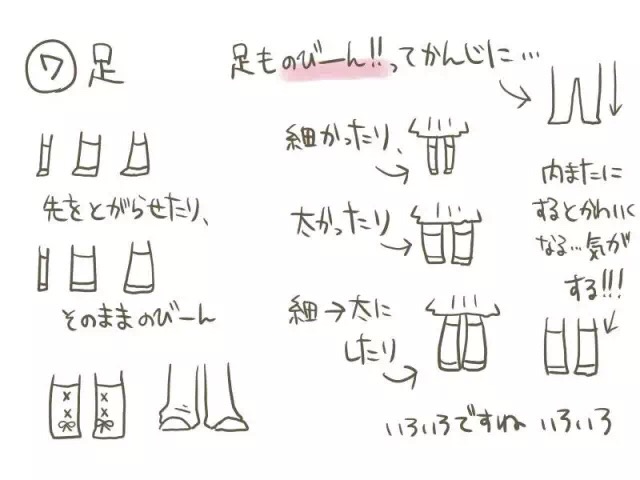 ⑦ 足
足ものびーん!!ってかんじに…
先をとがらせたり、
そのままのびーん
細かったり、
太かったり
細→太に
したり
内またに
するとかわいく
なる…気が
する!!!
いろいろですね いろいろ